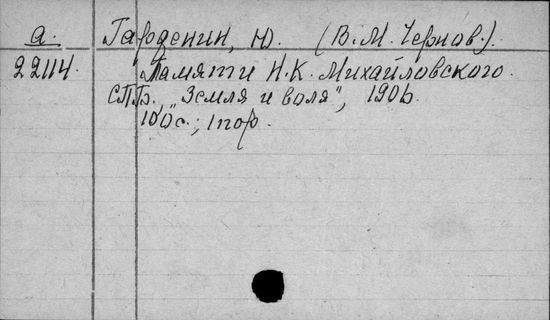 а. Гарденин, Ю. (В.М. Чернов.).
22114. Памяти Н.К. Михайловского.
СПБ., "Земля и воля", 1906.
100с.; 1 пор.